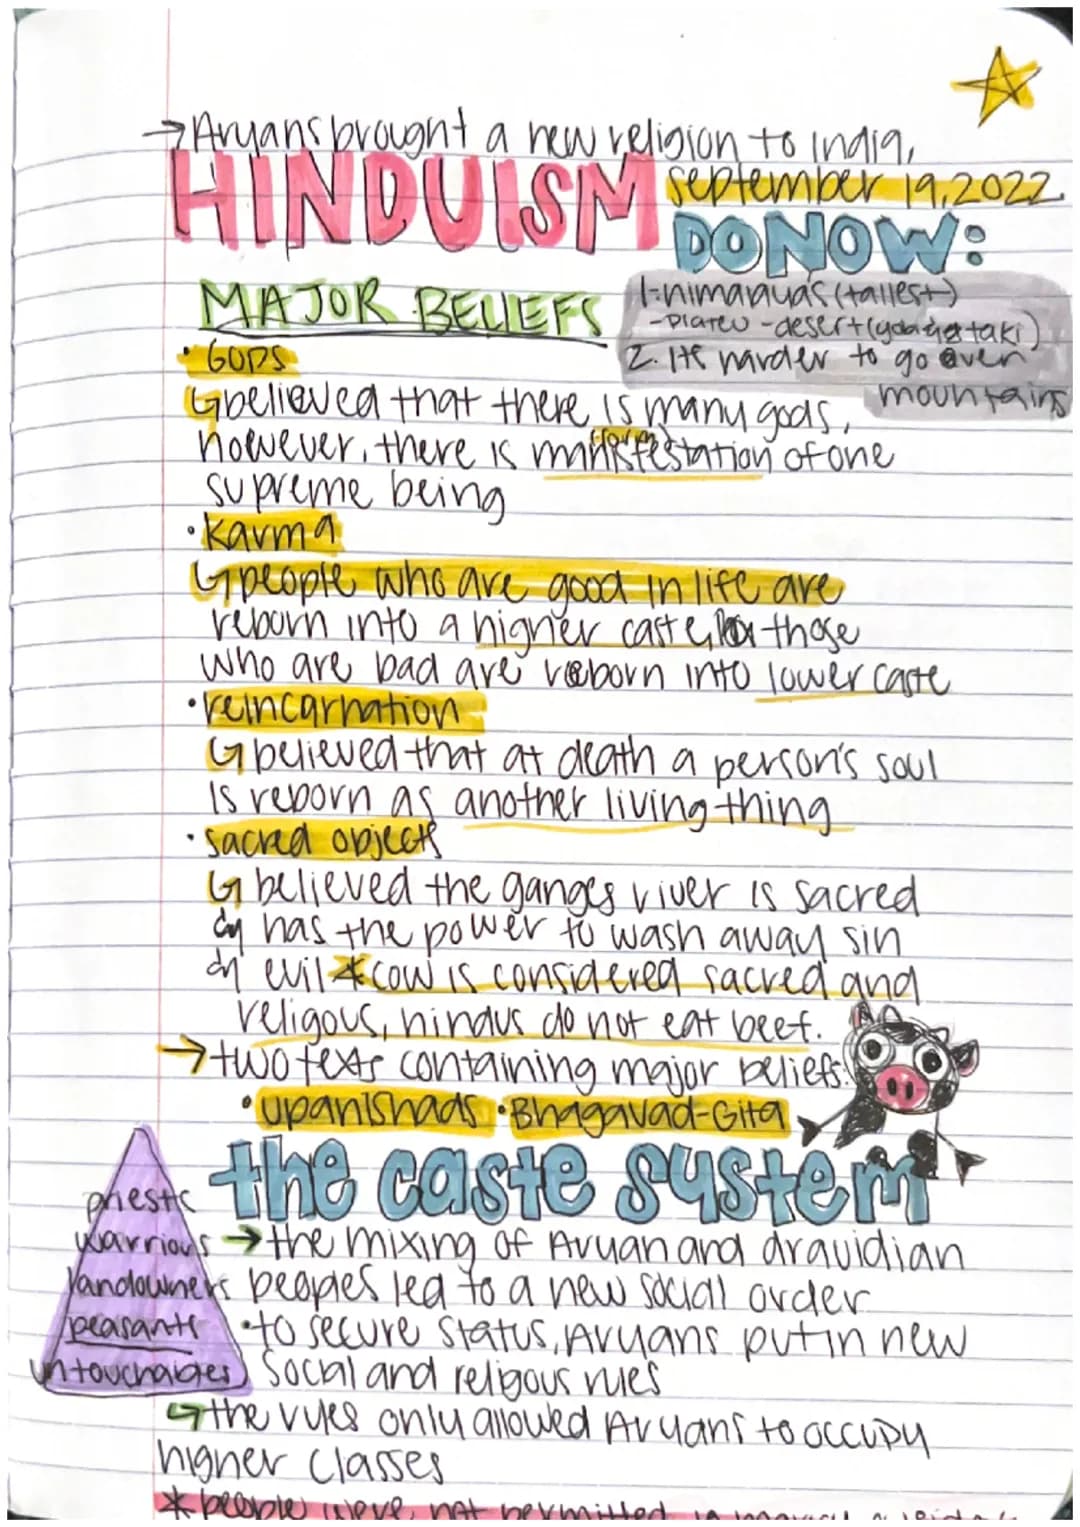 →Aryans brought a new religion to India,
HINDUISM
september 19,2022
DONOW:
1-himanyas (tallest)
-Plateu -desert
2. Its harder to go over
mountains
MAJOR BELIEFS
• GODS
↳believed that there is many gods,
however, there is manifestation of one
(form)
supreme being
• karma
↳people who are good in life are
reborn into a higher caste, those
who are bad are reborn into lower caste
• reincarnation
↳believed that at death a person's soul
is reborn as another living thing
• sacred objects
↳ believed the ganges river is sacred
& has the power to wash away sin
& evil *cow is considered sacred and
religous, hindus do not eat beef.
→two texts containing major beliefs:
• upanishads • Bhagavad-Gita
the caste system
priests
warriors
landowners
peasants
untouchables
→the mixing of Aryan and dravidian
peoples led to a new social order
•to secure status, Aryans put in new
social and religous rules
↳the rules only allowed Aryans to occupy
higher classes
* people were not permitted to marry